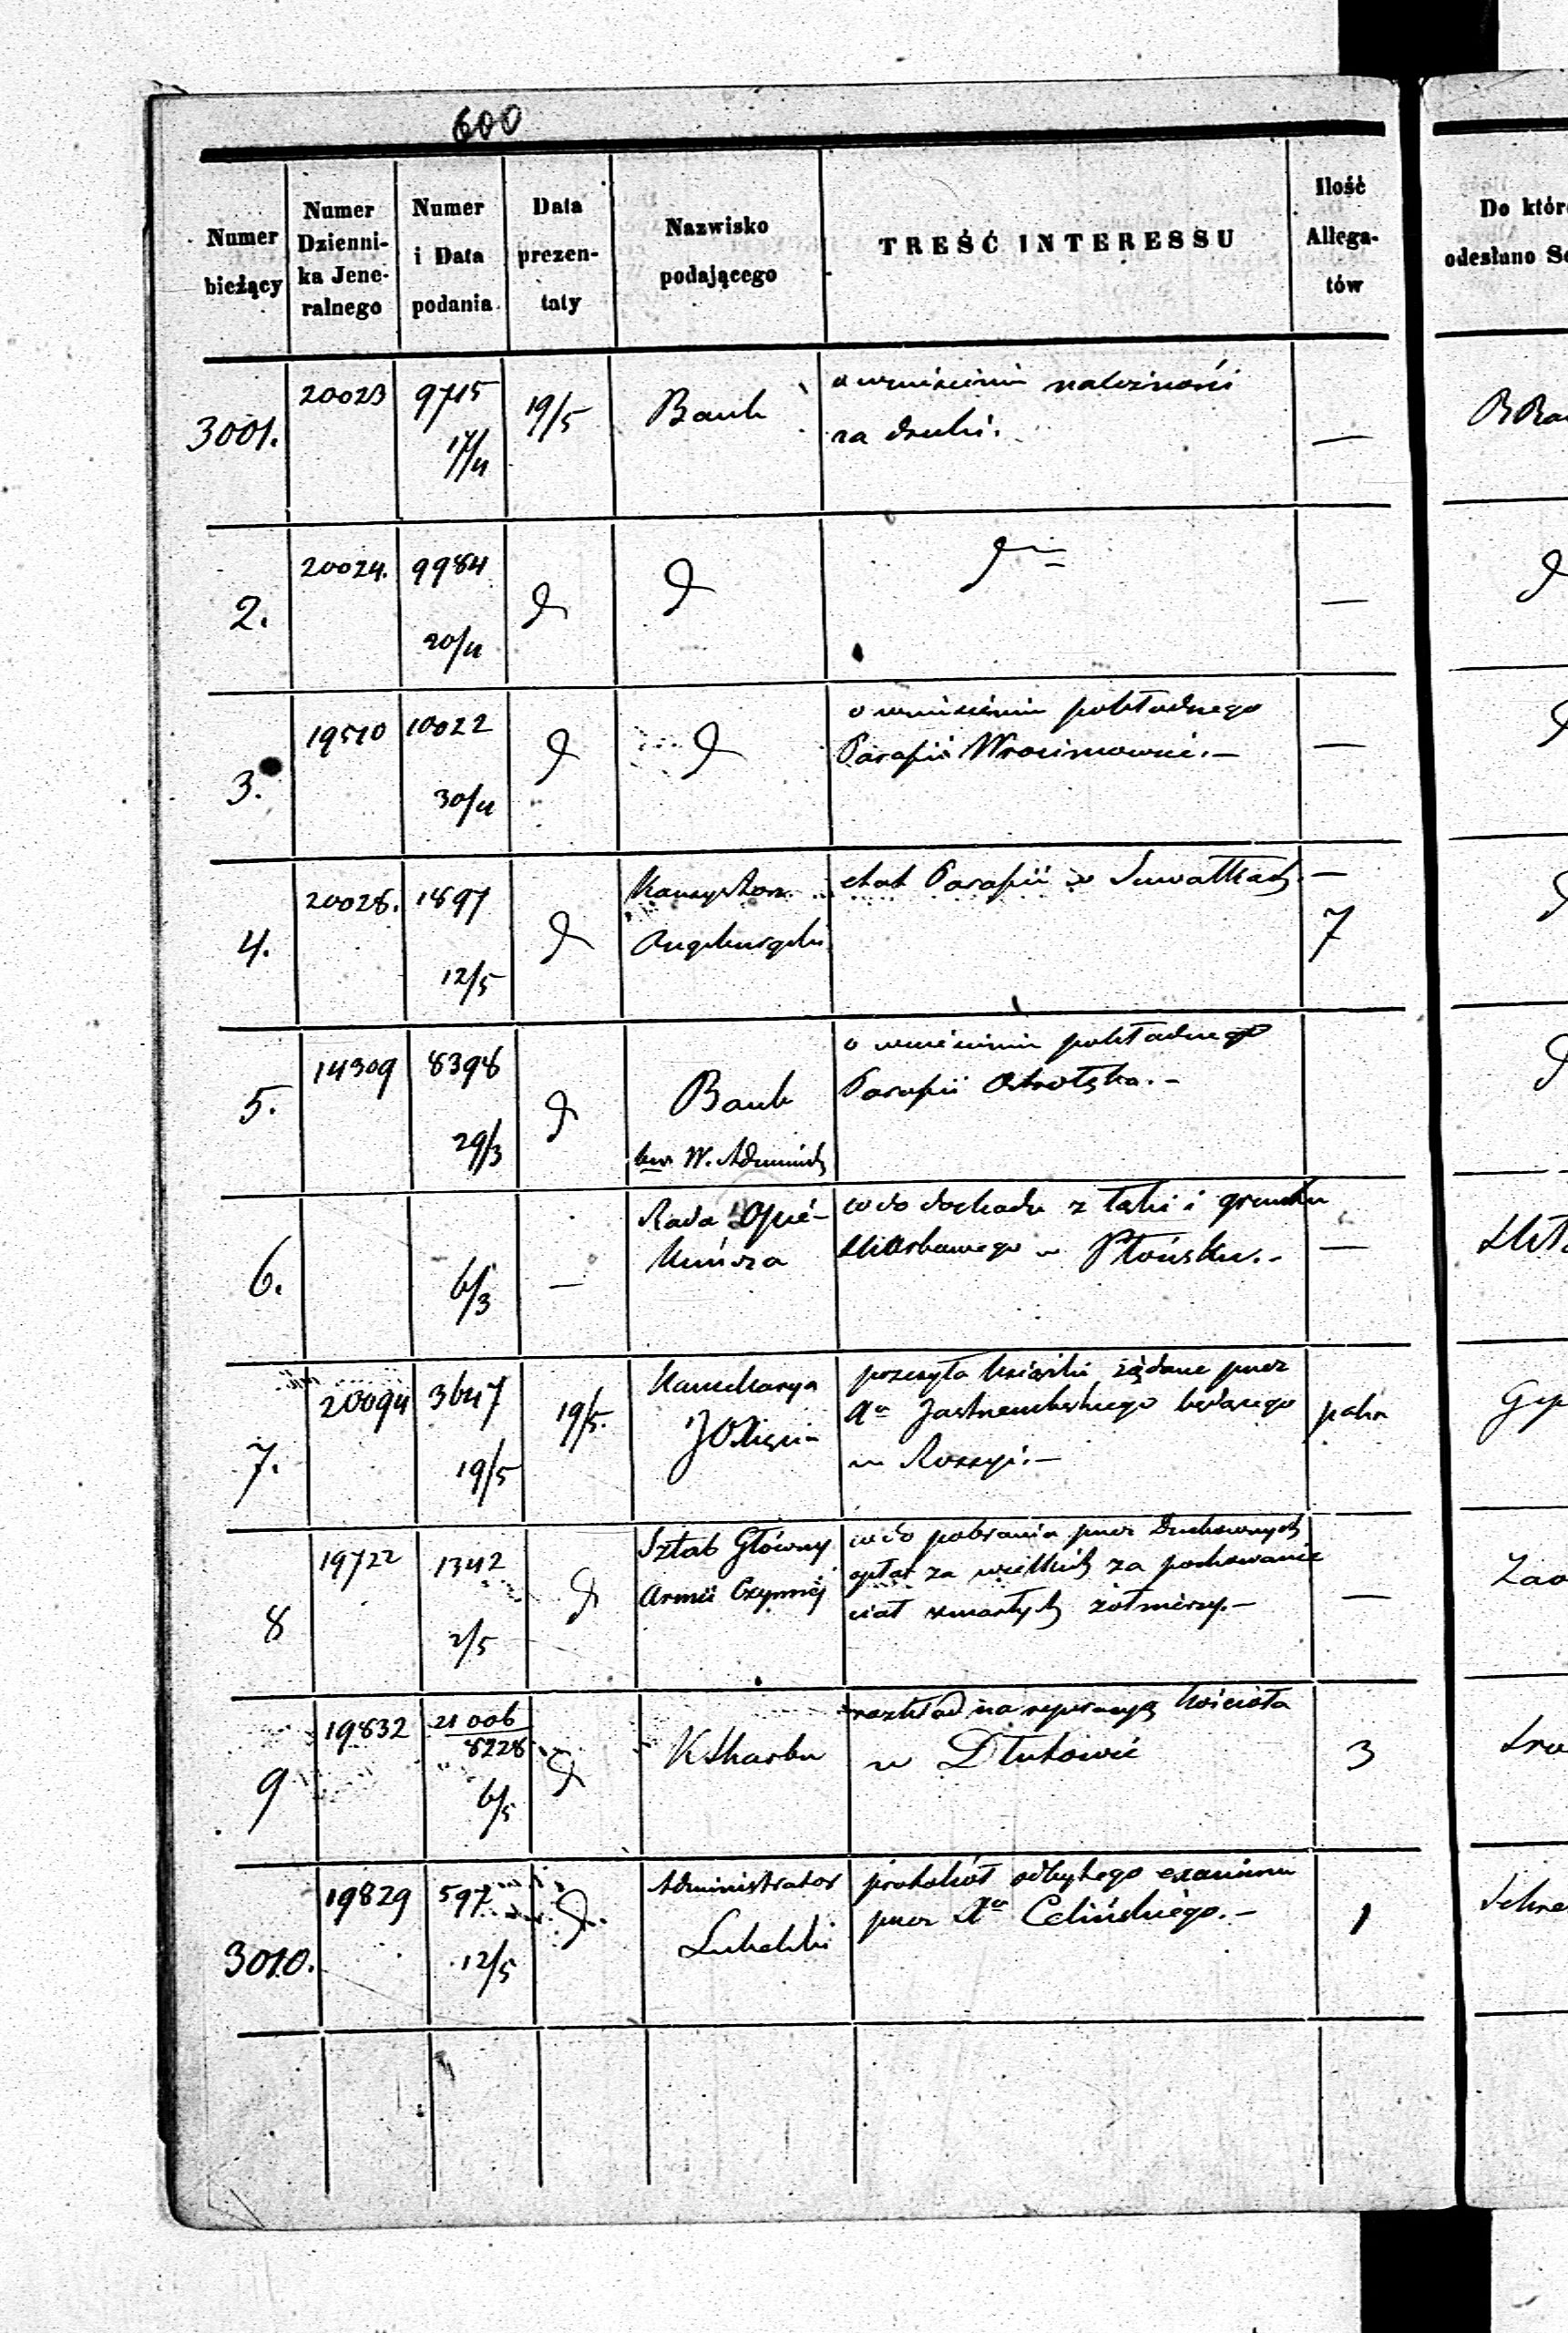 600
Numer bieżący
Numer Dzienni- ka Jene- ralnego
Numer i Data podania
Data prezen- taty
Nazwisko podającego
TREŚĆ INTERESSU
Ilość Allega- tów
Do któr
odesłano Se
3001. 20023 9715 17/4 19/5 Bank
o wniesieniu należności
za druki. —
2. 20024. 9984 20/4 d d d —
3. 19510 10022 30/4 d d
o wniesieniu pokładnego
Parafii Wrocimowice. — —
4. 20028. 1897 12/5 d
Konsystorz
Augsburgski
etat Parafii w Suwałkach. — 7
5. 14309 8398 29/3 d
Bank
W. Administr
o wniesieniu pokładnego
Parafii Ostrołęka. —
6. 6/3 —
Rada Opie-
kuńcza
co do dochodu z łąki i gruntu
Skarbowego w Płońsku. — —
7. 20094 3647 19/5 19/5.
Kancellarya
JOXięcia
przesyła książki żądane przez
Xa Jastrzembskiego będącego
w Rossyi. —
8 19722 1342 2/5 d
Sztab Główny
Armii Czynnéj
co do pobrania przez Duchownych
opłat za wielkich za pochowanie
ciał zmarłych żołnierzy. — —
9 19832 21006 8228 6/5 d
KSkarbu
rozkład na reperacyą kościoła
w Dłutowie 3
3010. 19829 597 12/5 d.
Administrator
Lubelski
protokół odbytego examinu
przez Xa Celińskiego. — 1